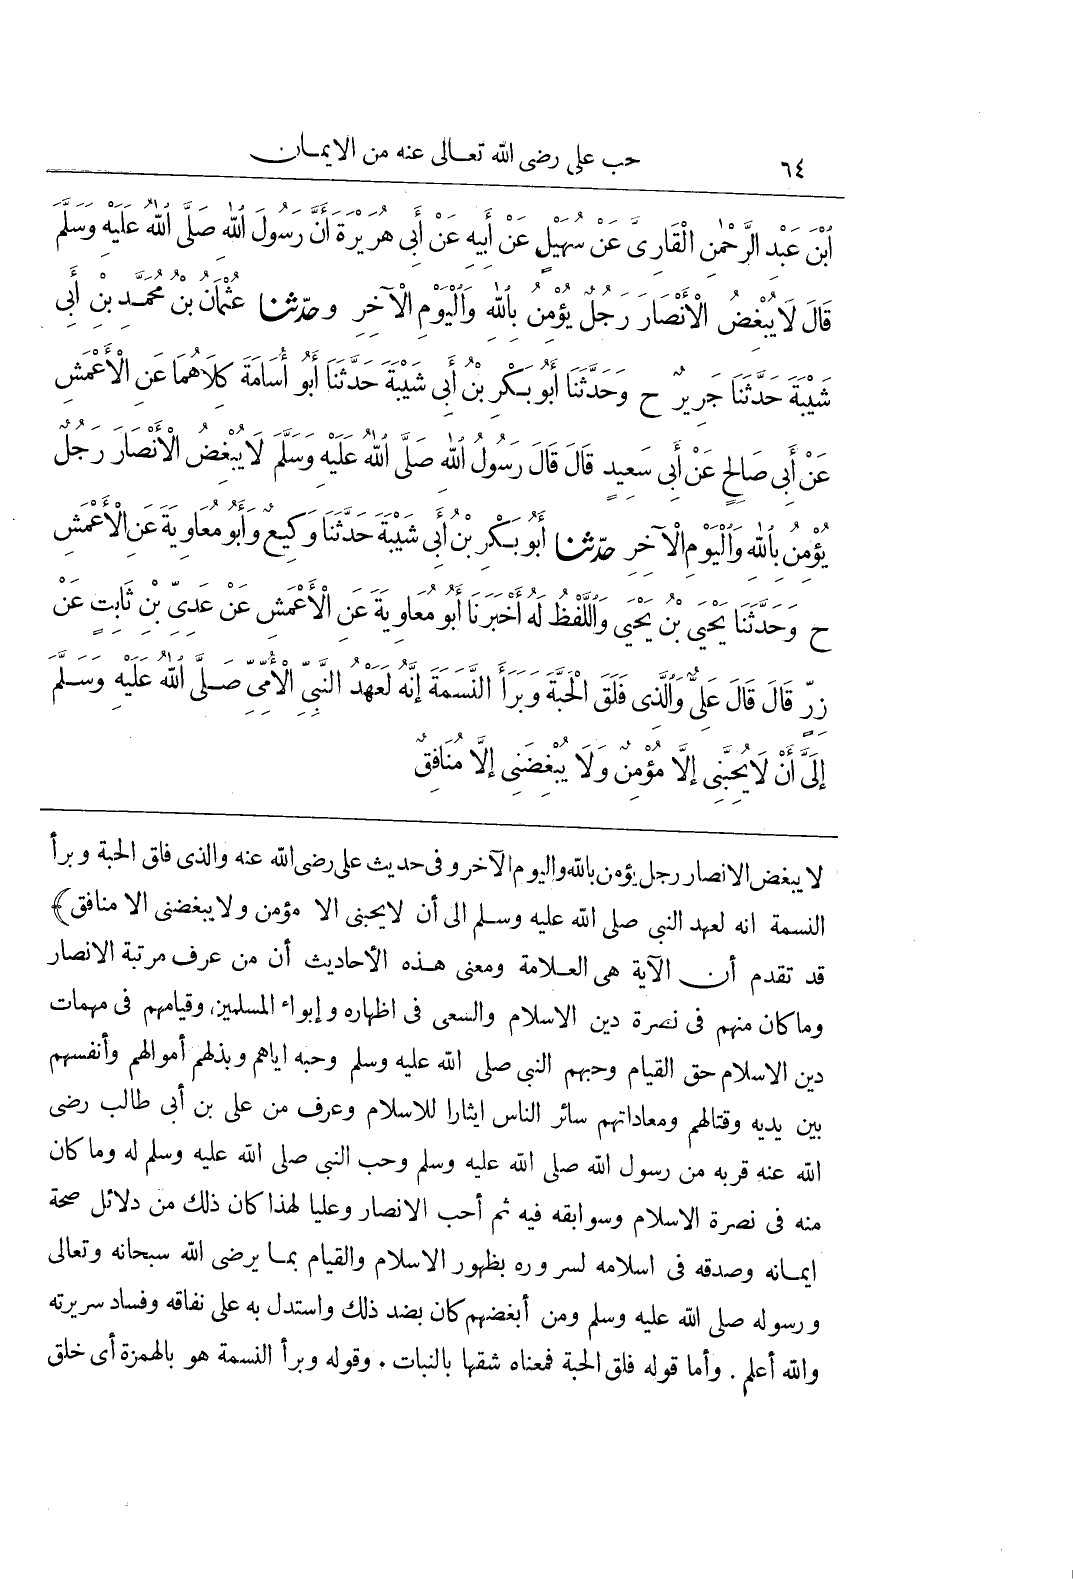 ٦٤
حب على رضى الله تعالى عنه من الايمان
ابْنَ عَبْدِ الرَّحْمٰنِ الْقَارِىَّ عَنْ سُهَيْلٍ عَنْ أَبِيهِ عَنْ أَبِى هُرَيْرَةَ أَنَّ رَسُولَ اللهِ صَلَّى اللهُ عَلَيْهِ وَسَلَّمَ
قَالَ لَا يُبْغِضُ الْأَنْصَارَ رَجُلٌ يُؤْمِنُ بِاللهِ وَالْيَوْمِ الْآخِرِ وحدّثنا عُثْمَانُ بْنُ مُحَمَّدِ بْنِ أَبِى
شَيْبَةَ حَدَّثَنَا جَرِيرٌ ح وَحَدَّثَنَا أَبُو بَكْرِ بْنُ أَبِى شَيْبَةَ حَدَّثَنَا أَبُو أُسَامَةَ كِلَاهُمَا عَنِ الْأَعْمَشِ
عَنْ أَبِى صَالِحٍ عَنْ أَبِى سَعِيدٍ قَالَ قَالَ رَسُولُ اللهِ صَلَّى اللهُ عَلَيْهِ وَسَلَّمَ لَا يُبْغِضُ الْأَنْصَارَ رَجُلٌ
يُؤْمِنُ بِاللهِ وَالْيَوْمِ الْآخِرِ حدّثنا أَبُو بَكْرِ بْنُ أَبِى شَيْبَةَ حَدَّثَنَا وَكِيعٌ وَأَبُو مُعَاوِيَةَ عَنِ الْأَعْمَشِ
ح وَحَدَّثَنَا يَحْيَى بْنُ يَحْيَى وَاللَّفْظُ لَهُ أَخْبَرَنَا أَبُو مُعَاوِيَةَ عَنِ الْأَعْمَشِ عَنْ عَدِىِّ بْنِ ثَابِتٍ عَنْ
زِرٍّ قَالَ قَالَ عَلِىٌّ وَالَّذِى فَلَقَ الْحَبَّةَ وَبَرَأَ النَّسَمَةَ إِنَّهُ لَعَهْدُ النَّبِىِّ الْأُمِّىِّ صَلَّى اللهُ عَلَيْهِ وَسَلَّمَ
إِلَىَّ أَنْ لَا يُحِبَّنِى إِلَّا مُؤْمِنٌ وَلَا يُبْغِضَنِى إِلَّا مُنَافِقٌ
لا يبغض الانصار رجل يؤمن بالله واليوم الآخر وفى حديث على رضى الله عنه والذى فلق الحبة وبرأ
النسمة انه لعهد النبى صلى الله عليه وسلم الى أن لايحبنى الا مؤمن ولايبغضنى الا منافق﴾
قد تقدم أن الآية هى العلامة ومعنى هذه الأحاديث أن من عرف مرتبة الانصار
وما كان منهم فى نصرة دين الاسلام والسعى فى اظهاره وإيواء المسلمين، وقيامهم فى مهمات
دين الاسلام حق القيام وحبهم النبى صلى الله عليه وسلم وحبه اياهم وبذلهم أموالهم وأنفسهم
بين يديه وقتالهم ومعاداتهم سائر الناس ايثارا للاسلام وعرف من على بن أبى طالب رضى
الله عنه قربه من رسول الله صلى الله عليه وسلم وحب النبى صلى الله عليه وسلم له وما كان
منه فى نصرة الاسلام وسوابقه فيه ثم أحب الانصار وعليا لهذا كان ذلك من دلائل صحة
ايمانه وصدقه فى اسلامه لسروره بظهور الاسلام والقيام بما يرضى الله سبحانه وتعالى
ورسوله صلى الله عليه وسلم ومن أبغضهم كان بضد ذلك واستدل به على نفاقه وفساد سريرته
والله أعلم . وأما قوله فلق الحبة فمعناه شقها بالنبات . وقوله وبرأ النسمة هو بالهمزة أى خلق